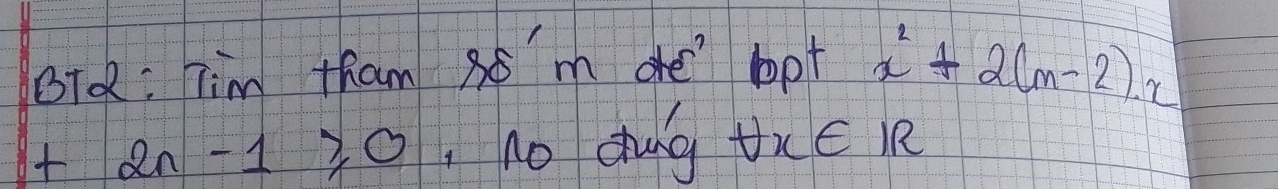 BT2: Tìm tham số m để bpt x² + 2(m-2).x
+ 2n - 1 ⩾ 0, no đúng ∀x ∈ ℝ